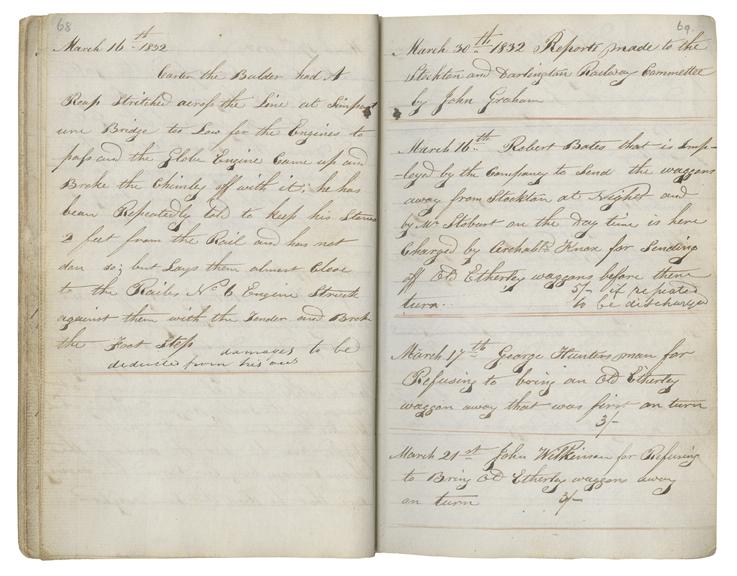 68
March 16th 1832
Carter the Bulder had A
Roap Stritched across the Line at Simpast
ure Bridge to Low for the Engines to
pass and the Globe Engine Came up and
Broke the Chimley off with it; he has
been Repeatedly told to keep his Stones
2 feet from the Rail and has not
don so; but Lays them almost Close
to the Railes No 6 Engine Struck
against them with the Tender and Broke
the Foot Step damages to be
deducted from his acct
69.
March 30th 1832 Reports made to the
Stockton and Darlington Railway Committee
by John Graham
March 16th Robert Bates that is Imp-
loyed by the Company to Send the waggons
away from Stockton at Night and
by Mr Stobart on the Day time is here
Charged by Archabld Knox for Sending
off Old Etherley waggons before there
turn. 5/- if repeated
to be discharged
March 17th George Hunters man for
Refusing to bring an Old Etherley
waggon away that was first an turn
3/-
March 21st John Wilkinson for Refusing
to Bring Old Etherley waggons away
an turn 3/-